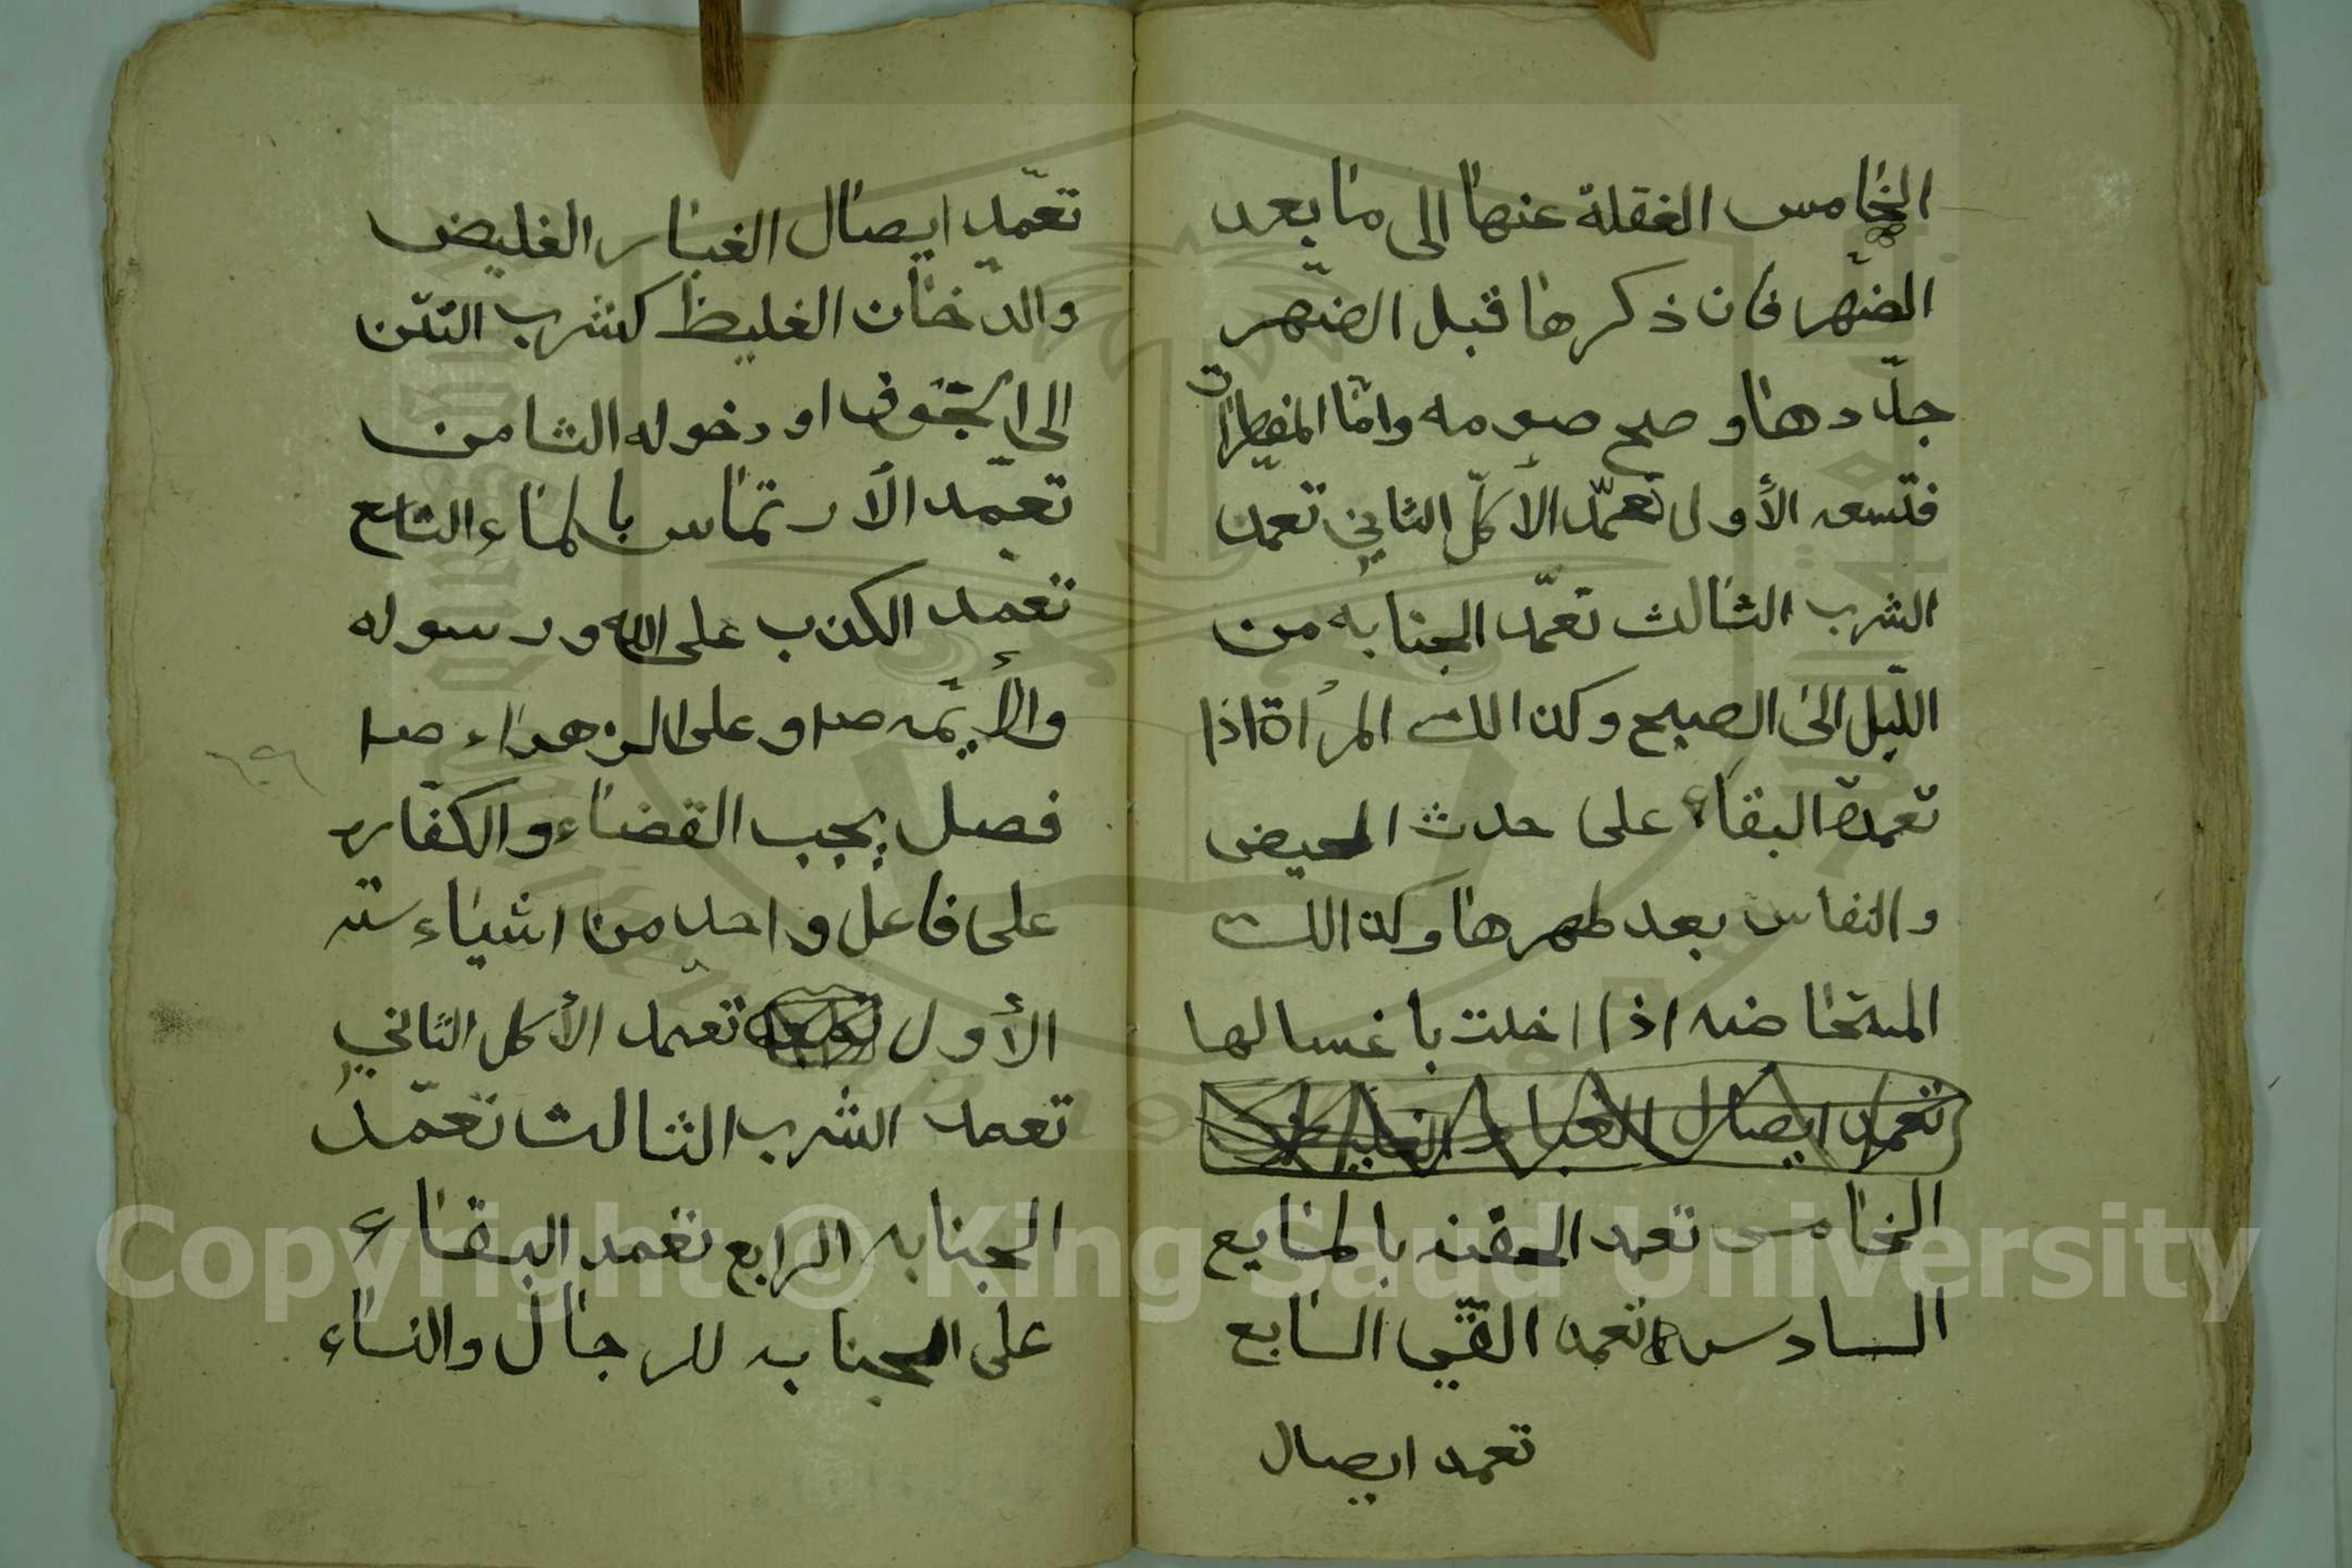 الخامس الغفلة عنها الى ما بعد
الضهر فان ذكرها قبل الضهر
جدّدها و صح صومه وامّا المفطرات
فتسعه الأول تعمّد الأكل الثاني تعمد
الشرب الثالث تعمّد الجنابه من
اللّيل الى الصبح وكذالك المرأة اذا
تعمدة البقاء على حدث الحيض
والنفاس بعد طهرها وكذالك
المستحاضه اذا اخلت باغسالها
تعمد ايصال الغبار الغليض
الخامس تعمد الحقنه بالمايع
السادس تعمد القّي السابع
تعمد ايصال
تعمّد ايصال الغبار الغليض
والدّخان الغليظ كشرب التتن
الى الجوف او دخوله الثامن
تعمّد الأرتماس بالماء التاسع
تعمد الكذب على الله ورسوله
والأيمّه ص و على الزهراء ص
فصل يجب القضاء والكفّاره
على فاعل واحد من اشياء سته
الأول تعمد الأكل الثاني
تعمد الشرب الثالث تعمّد
الجنابه الرابع تعمد البقاء
على الجنابه للرجال والنساء
Copyright © King Saud University